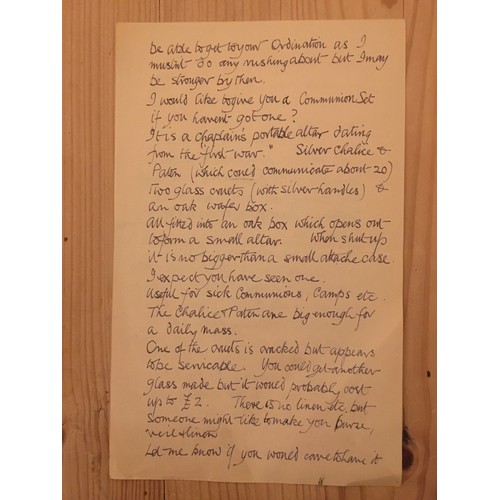 be able to get to your Ordination as I
musn't do any rushing about but I may
be stronger by then.
I would like to give you a Communion Set
if you haven't got one?
It is a chaplain's portable altar dating
from the "first war." Silver Chalice &
Paten (which could communicate about 20)
Two glass cruets (with silver handles) &
an oak wafer box.
All fitted into an oak box which opens out
to form a small altar. When shut up
it is no bigger than a small attache case.
I expect you have seen one.
Useful for sick Communions, Camps etc.
The Chalice & Paten are big enough for
a daily mass.
One of the cruets is cracked but appears
to be servicable. You could get another
glass made but it would probably cost
up to £2. There is no linen etc, but
someone might like to make you burse,
veil & linen
Let me know if you would care to have it